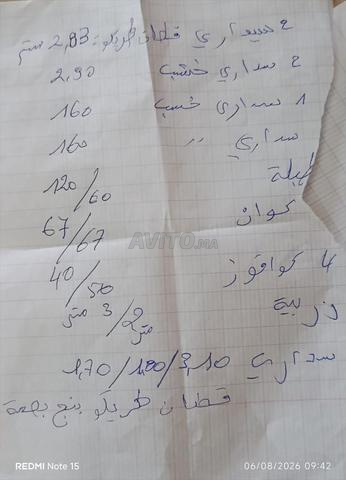 2 سداري قطان طريكو: 2,83 متر
2 سداري خشب 2,90
1 سداري خشب 160
سداري ,, 160
طبلة 120/60
كوان 67/67
4 كوافوز 40/50
زربية 2 متر / 3 متر
سداري 1,70/1,80/3,10
قطان طريكو بنج بصمة
AVITO.MA
REDMI Note 15
06/08/2026 09:42